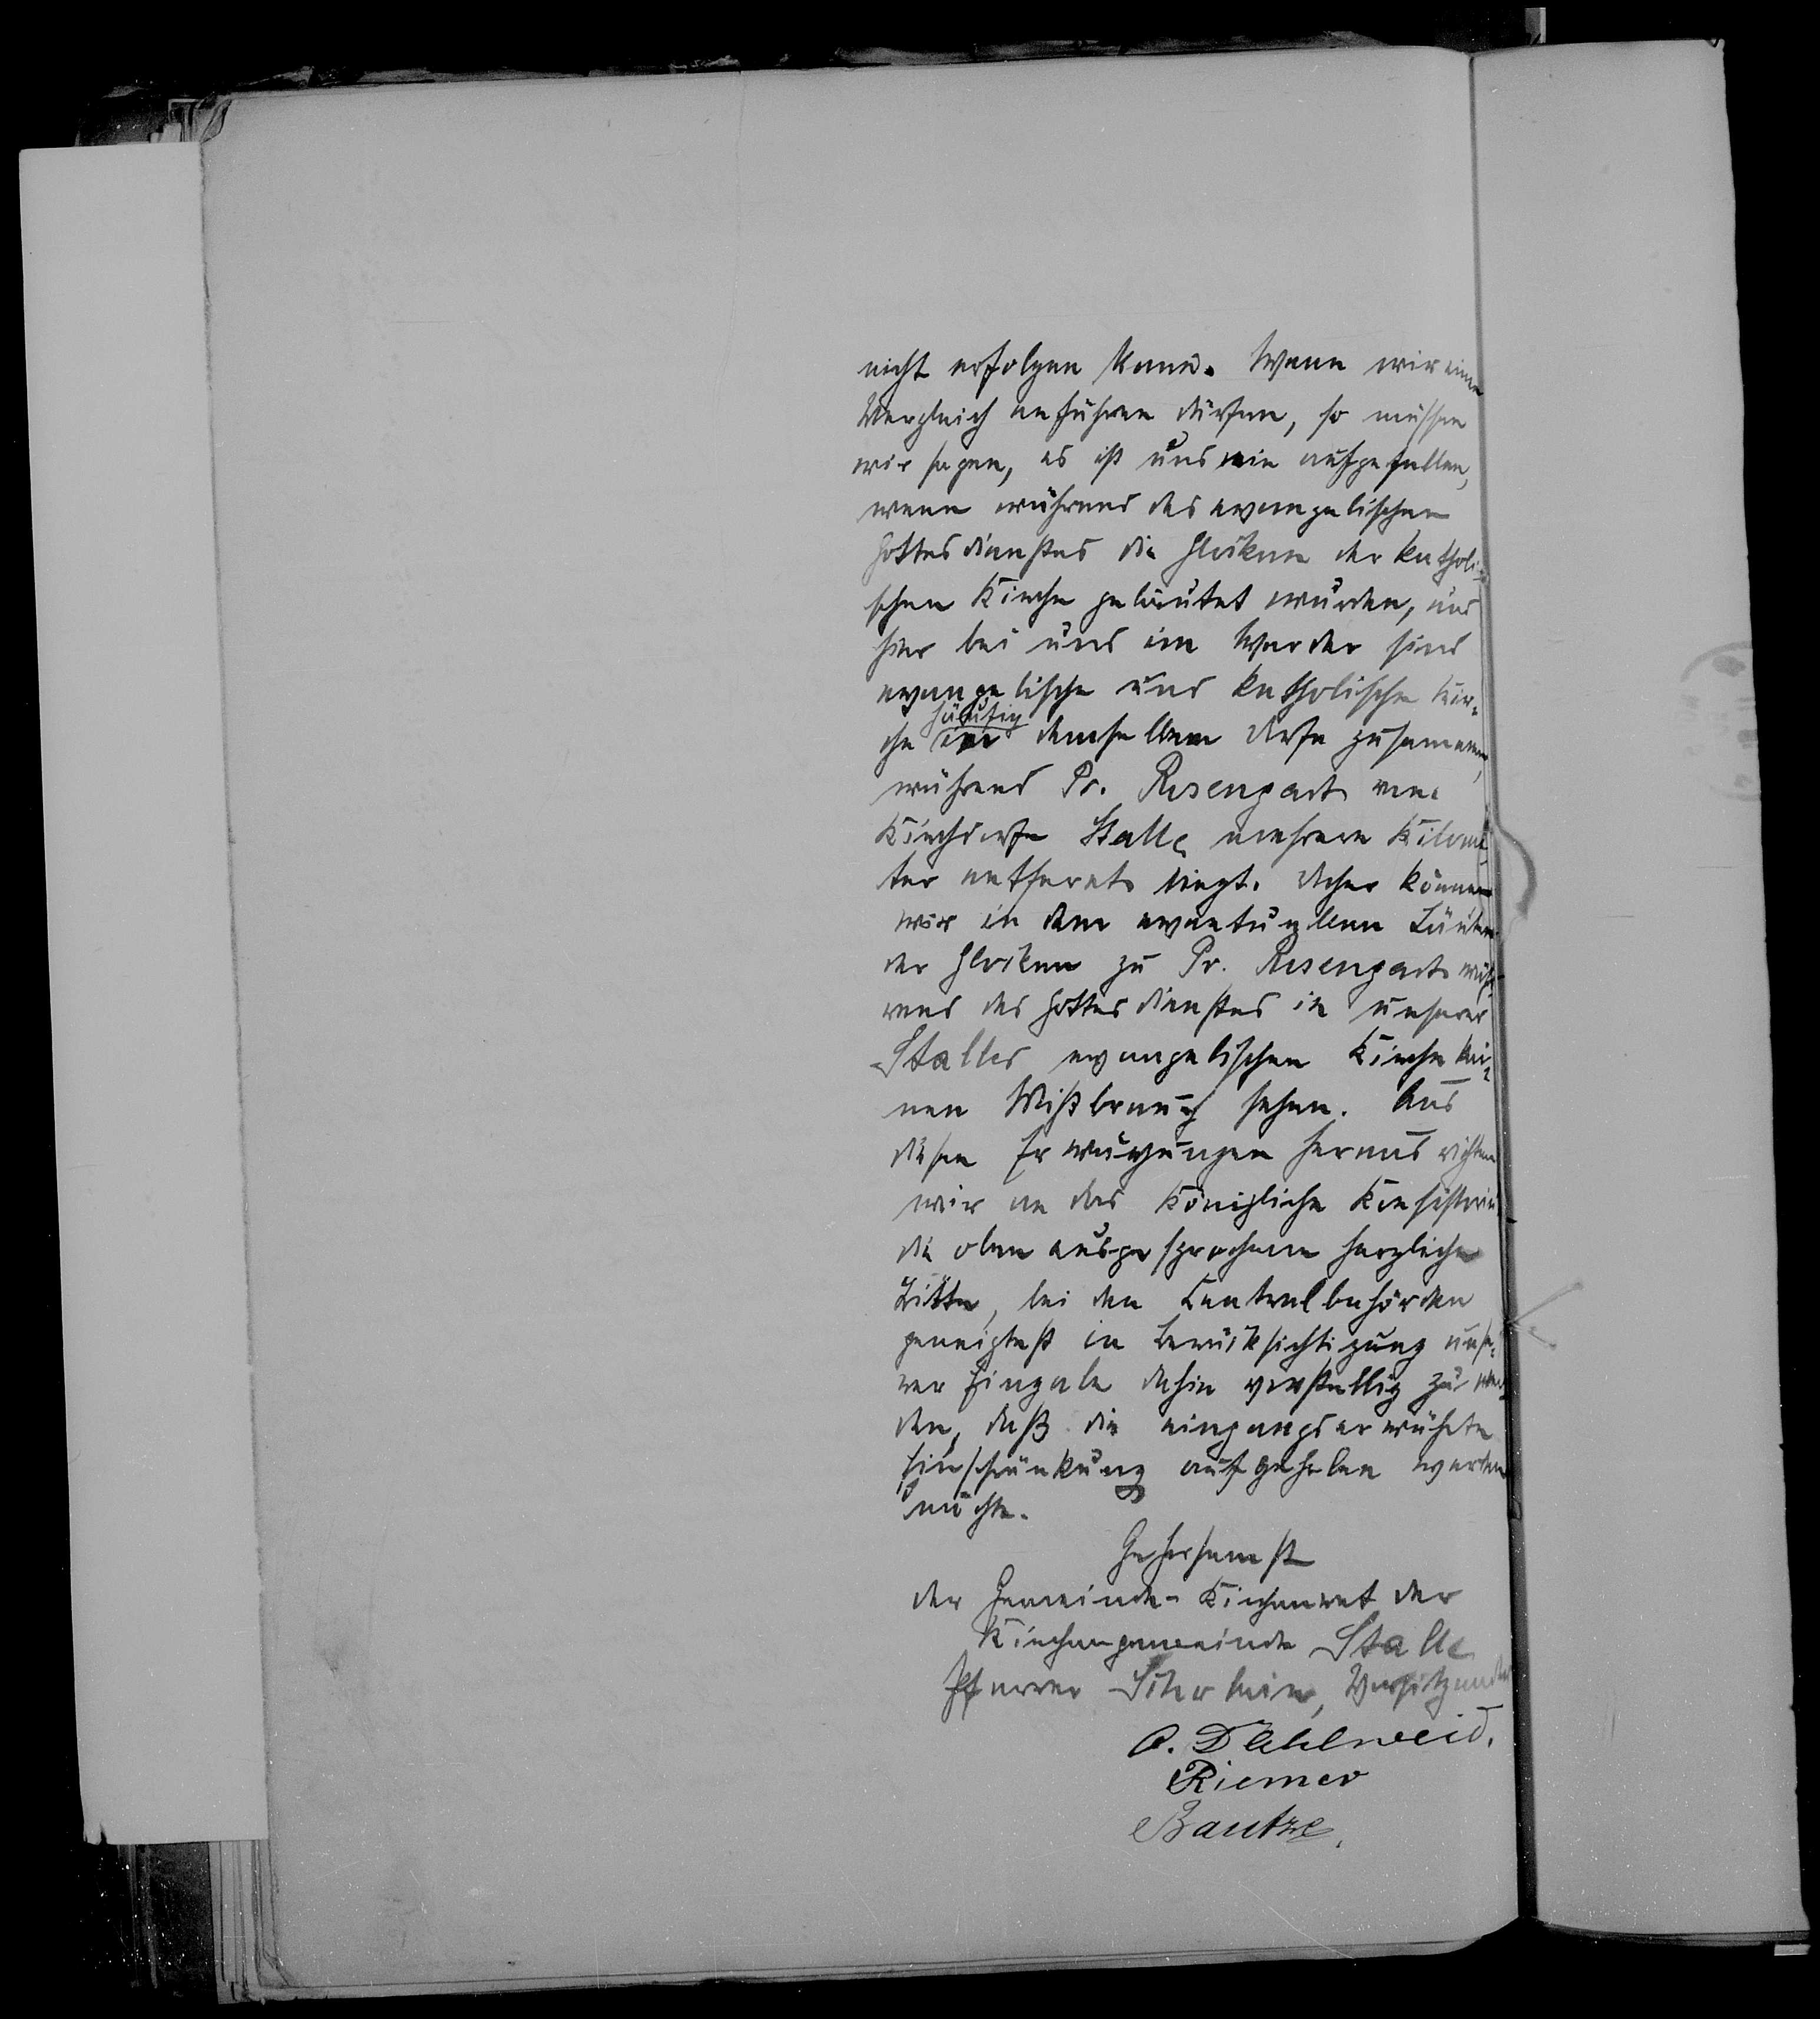 nicht erfolgen kann. Wenn wir einen
Vergleich anführen dürfen, so müssen
wir sagen, es ist uns nie aufgefallen,
wenn während des evangelischen
Gottesdienstes die Glocken der katholi-
schen Kirche geläutet wurden, und
hier bei uns im Werder sind
evangelische und katholische Kir-
häufig
che in demselben Dorfe zusammen,
während Pr. Rosengart vom
Kirchdorfe Stalle mehrere Kilome-
ter entfernt liegt. Daher können
wir in dem eventuellen Läuten
der Glocken zu Pr. Rosengart wäh-
rend des Gottesdienstes in unserer
Staller evangelischen Kirche kei-
nen Mißbrauch sehen. Aus
diesen Erwägungen heraus richten
wir an das Königliche Konsistorium
die oben ausgesprochene herzliche
Bitte, bei den Centralbehörden
geneigtest in Berücksichtigung unse-
rer Eingabe dahin vorstellig zu wer-
den, daß die eingangserwähnte
Einschränkung aufgehoben werden
möchte.
Gehorsamst
der Gemeinde-Kirchenrat der
Kirchengemeinde Stalle
Pfarrer Vorsitzender
O. Dahlweid.
Riemer
Bautze.